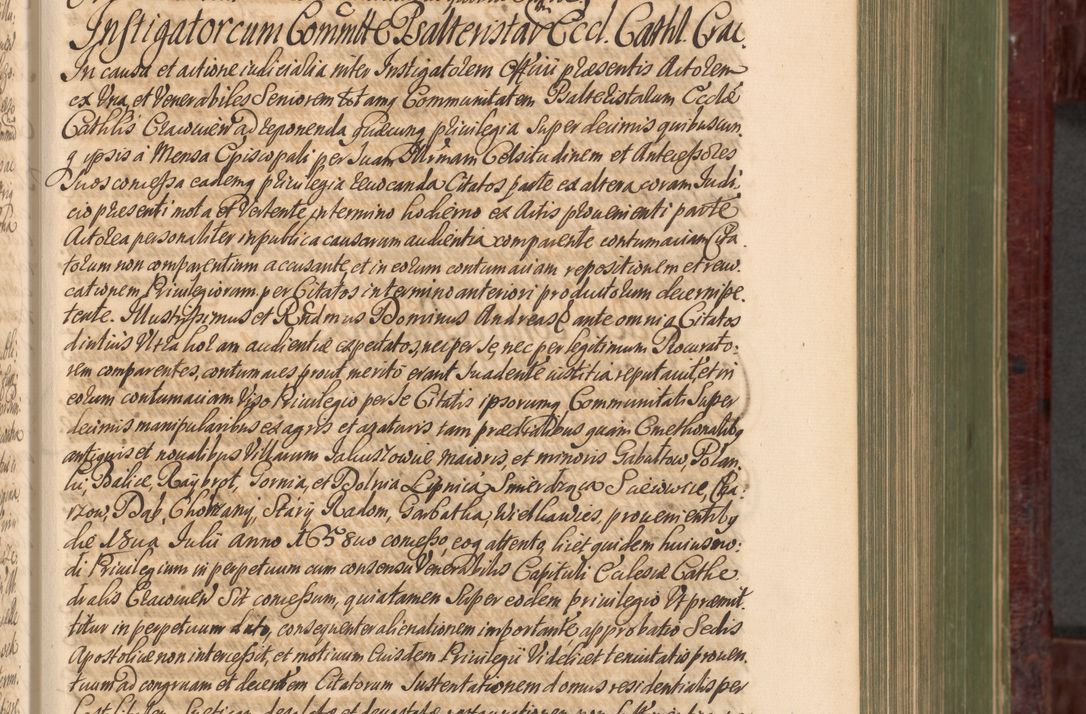 Instigatorcum Committe Psalteristar Eccl. Cathl. Crac.
In causa et actione iudicialia inter Instigatorem Officii praesentis Actorem
ex una, et Venerabiles Seniorem totamq Communitatem Psalteristarum Ecclae
Cathlis Cracovien ad reponenda quaecunq priuilegia Super decimis quibuscun
q ipsis á Mensa Episcopali per Suam Illrmam Celsitudinem et Antecessores
Suos concessa eademq priuilegia reuocanda Citatos parte ex altera coram Iudi,
cio praesenti mota et Vertente, in termino hodierno ex Actis prouenienti parte
Actorea personaliter in publica causarum audientia comparente contumaciam Cita
torum non comparentium accusante, et in eorum contumaciam repositionem et reuo
cationem Priuilegiorum per Citatos in termino anteriori productorum decerni pe,
tente. Illustrissimus et Rndmus Dominus Andreas ante omnia Citatos
diutius Ultra horam audientiae expectatos, nec per se, nec per legitimum Procurato:
rem comparentes, contumaces prout merito erant Suadente iustitia reputauit, et in
eorum contumaciam Viso Priuilegio per se Citatis ipsorumq Communitati Super
decimis manipularibus ex agris et agaturis tam praedialibus quam Cmethonalibq
antiquis et noualibus Villarum Jakuszowice maioris, et minoris Gabultow, Polan,
ki, Balice, Raybrot, Gornia, et Dolnia Lipnica Smierdzaca Sciewice, Cha:
rzow, Dab, Chorzany, Stary Radom, Garbatka, Wielhawies, prouenientibq
die 18ua Julii Anno 1658uo concesso, eoq attento, licet quidem huiusmo:
di Priuilegium in perpetuum cum consensu Venerabilis Capituli Ecclesiae Cathe
dralis Cracovien Sit concessum, quia tamen Super eodem priuilegio Ut praemit,
titur in perpetuum dato, consequenter alienationem importante approbatio Sedis
Apostolicae non intercessit, et motiuum Eiusdem Priuilegii Videlicet tenuitatis prouen,
tuum ad congruam et decentem Citatorum Sustentationem domus residentialis per